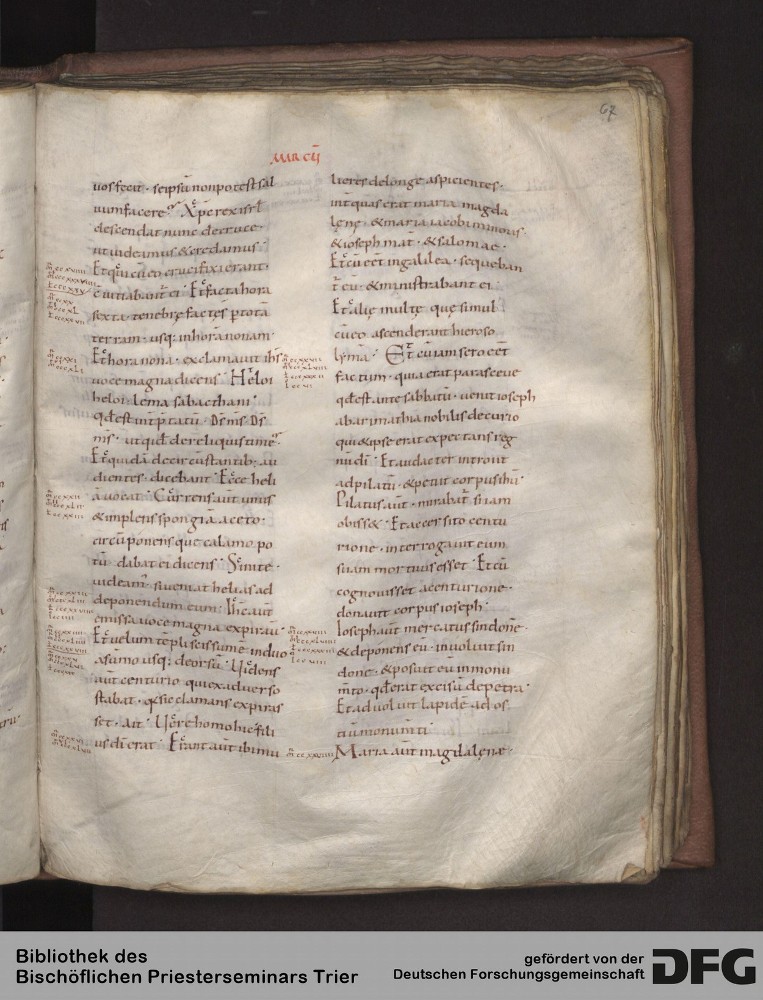 67
MARCŪ
uos fecit · seipsū non potest sal
uum facere · Xp̄c rex isrl̄
descendat nunc de cruce ·
ut uideamus & credamus ·
Et qui cū eo crucifixi erant ·
c̄uitiabant̄ ei · Et facta hora
sexta · tenebrę factę s̄ p totā
terram · usq; in horā nonam ·
Et hora nona · exclamauit ih̄s
uoce magna dicens · Heloi
heloi · lema sabacthani ·
qđ est int̄p̄tatū · Dš mš Dš
mš · ut quid dereliquisti me ·
Et quidā de circūstantib; au
dientes · dicebant · Ecce heli
ā uocat · Currens aūt unus
& implens spongiā aceto ·
circūponens que calamo · po
tū · dabat ei dicens · Sinite ·
uideam̄ · si ueniat helias ad
deponendum eum · Ih̄c aūt
emissa uoce magna expirauit ·
Et uelum tēpli scissum ē in duo
a sūmo usq; deorsū · Uidens
aūt centurio qui ex aduerso
stabat · q̇ sic clamans expiras
set · ait · Uere homo hic fili
us dī erat · Erant aūt ibi mu
lieres de longe aspicientes ·
int̄ quas erat maria magda
lenę · & maria iacobi minoris
& ioseph mat̄ · & salomae ·
Et cū eēt in galilea · sequeban
t̄ eū · & ministrabant ei ·
Et alię multę · quę simul
cū eo ascenderant hieroso
lyma · Et cū iam sero eēt
factum · quia erat parasceue
qđ est ante sabbatū · uenit ioseph
ab arimathia nobilis decurio
qui & ipse erat expectans reg
nū dī · Et audacter introiit
ad pilatū · & petiit corpus ihū ·
Pilatus aūt · mirabat̄ si iam
obiss& · Et accersito centu
rione · interrogauit eum
si iam mortuus esset · Et cū
cognouisset a centurione ·
donauit corpus ioseph ·
Ioseph aūt mercatus sindone ·
& deponens eū · inuoluit sin
done · & posuit eū in monu
m̄to · qđ erat excisū de petra ·
Et aduoluit lapidē ad os
tiū monum̄ti ·
Maria aūt magdalenæ ·
Bibliothek des
Bischöflichen Priesterseminars Trier
gefördert von der
Deutschen Forschungsgemeinschaft
DFG